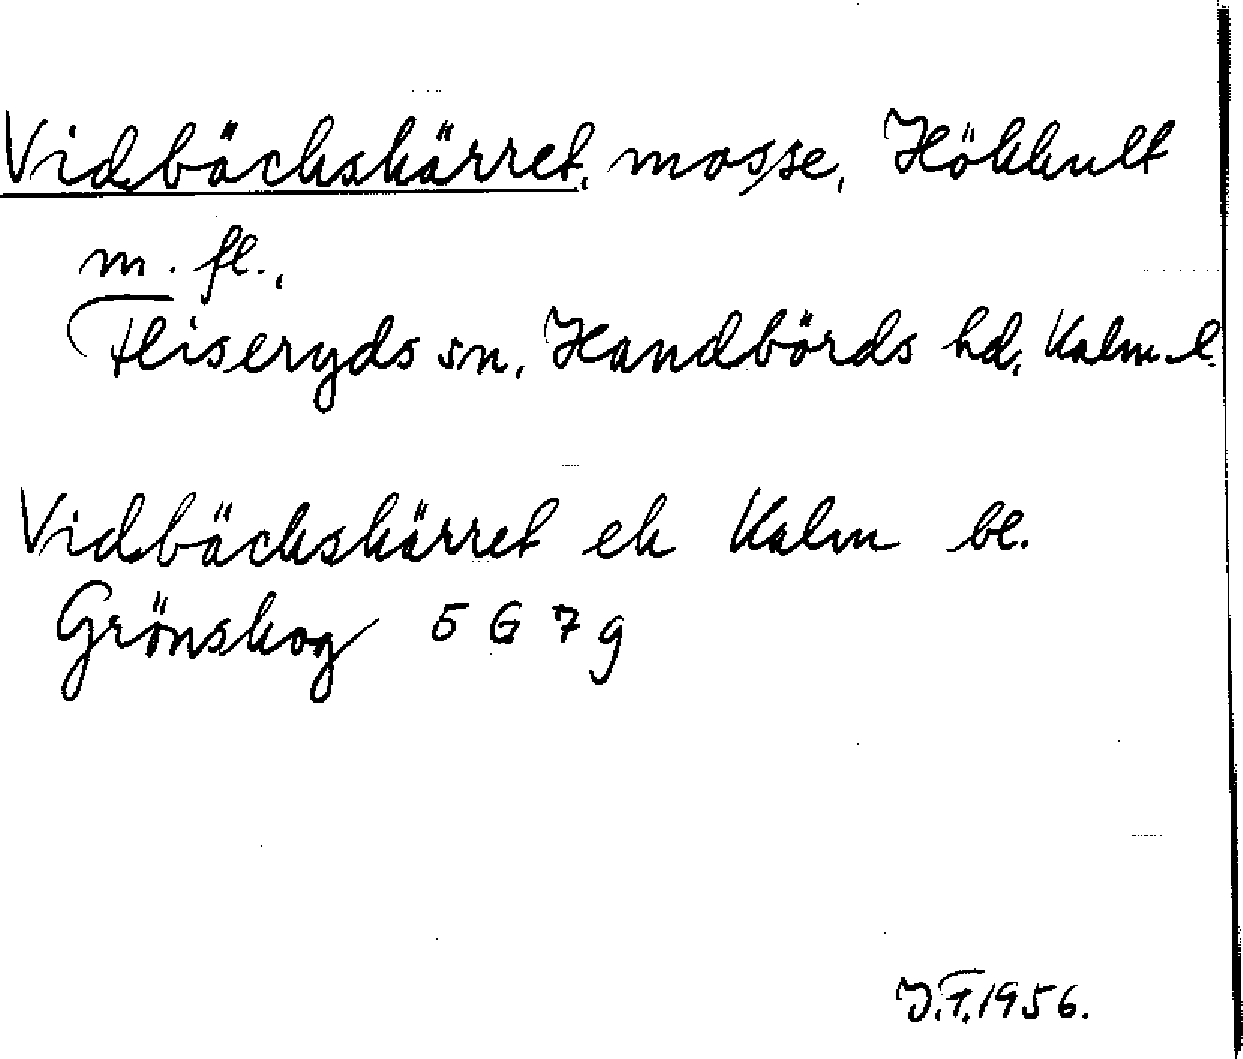 Vidbäckskärret, mosse, Hökhult
m. fl.,
Fliseryds sn, Handbörds hd, Kalm. l.
Vidbäckskärret ek Kalm bl.
Grönskog 5 G 7 g
J.F. 1956.